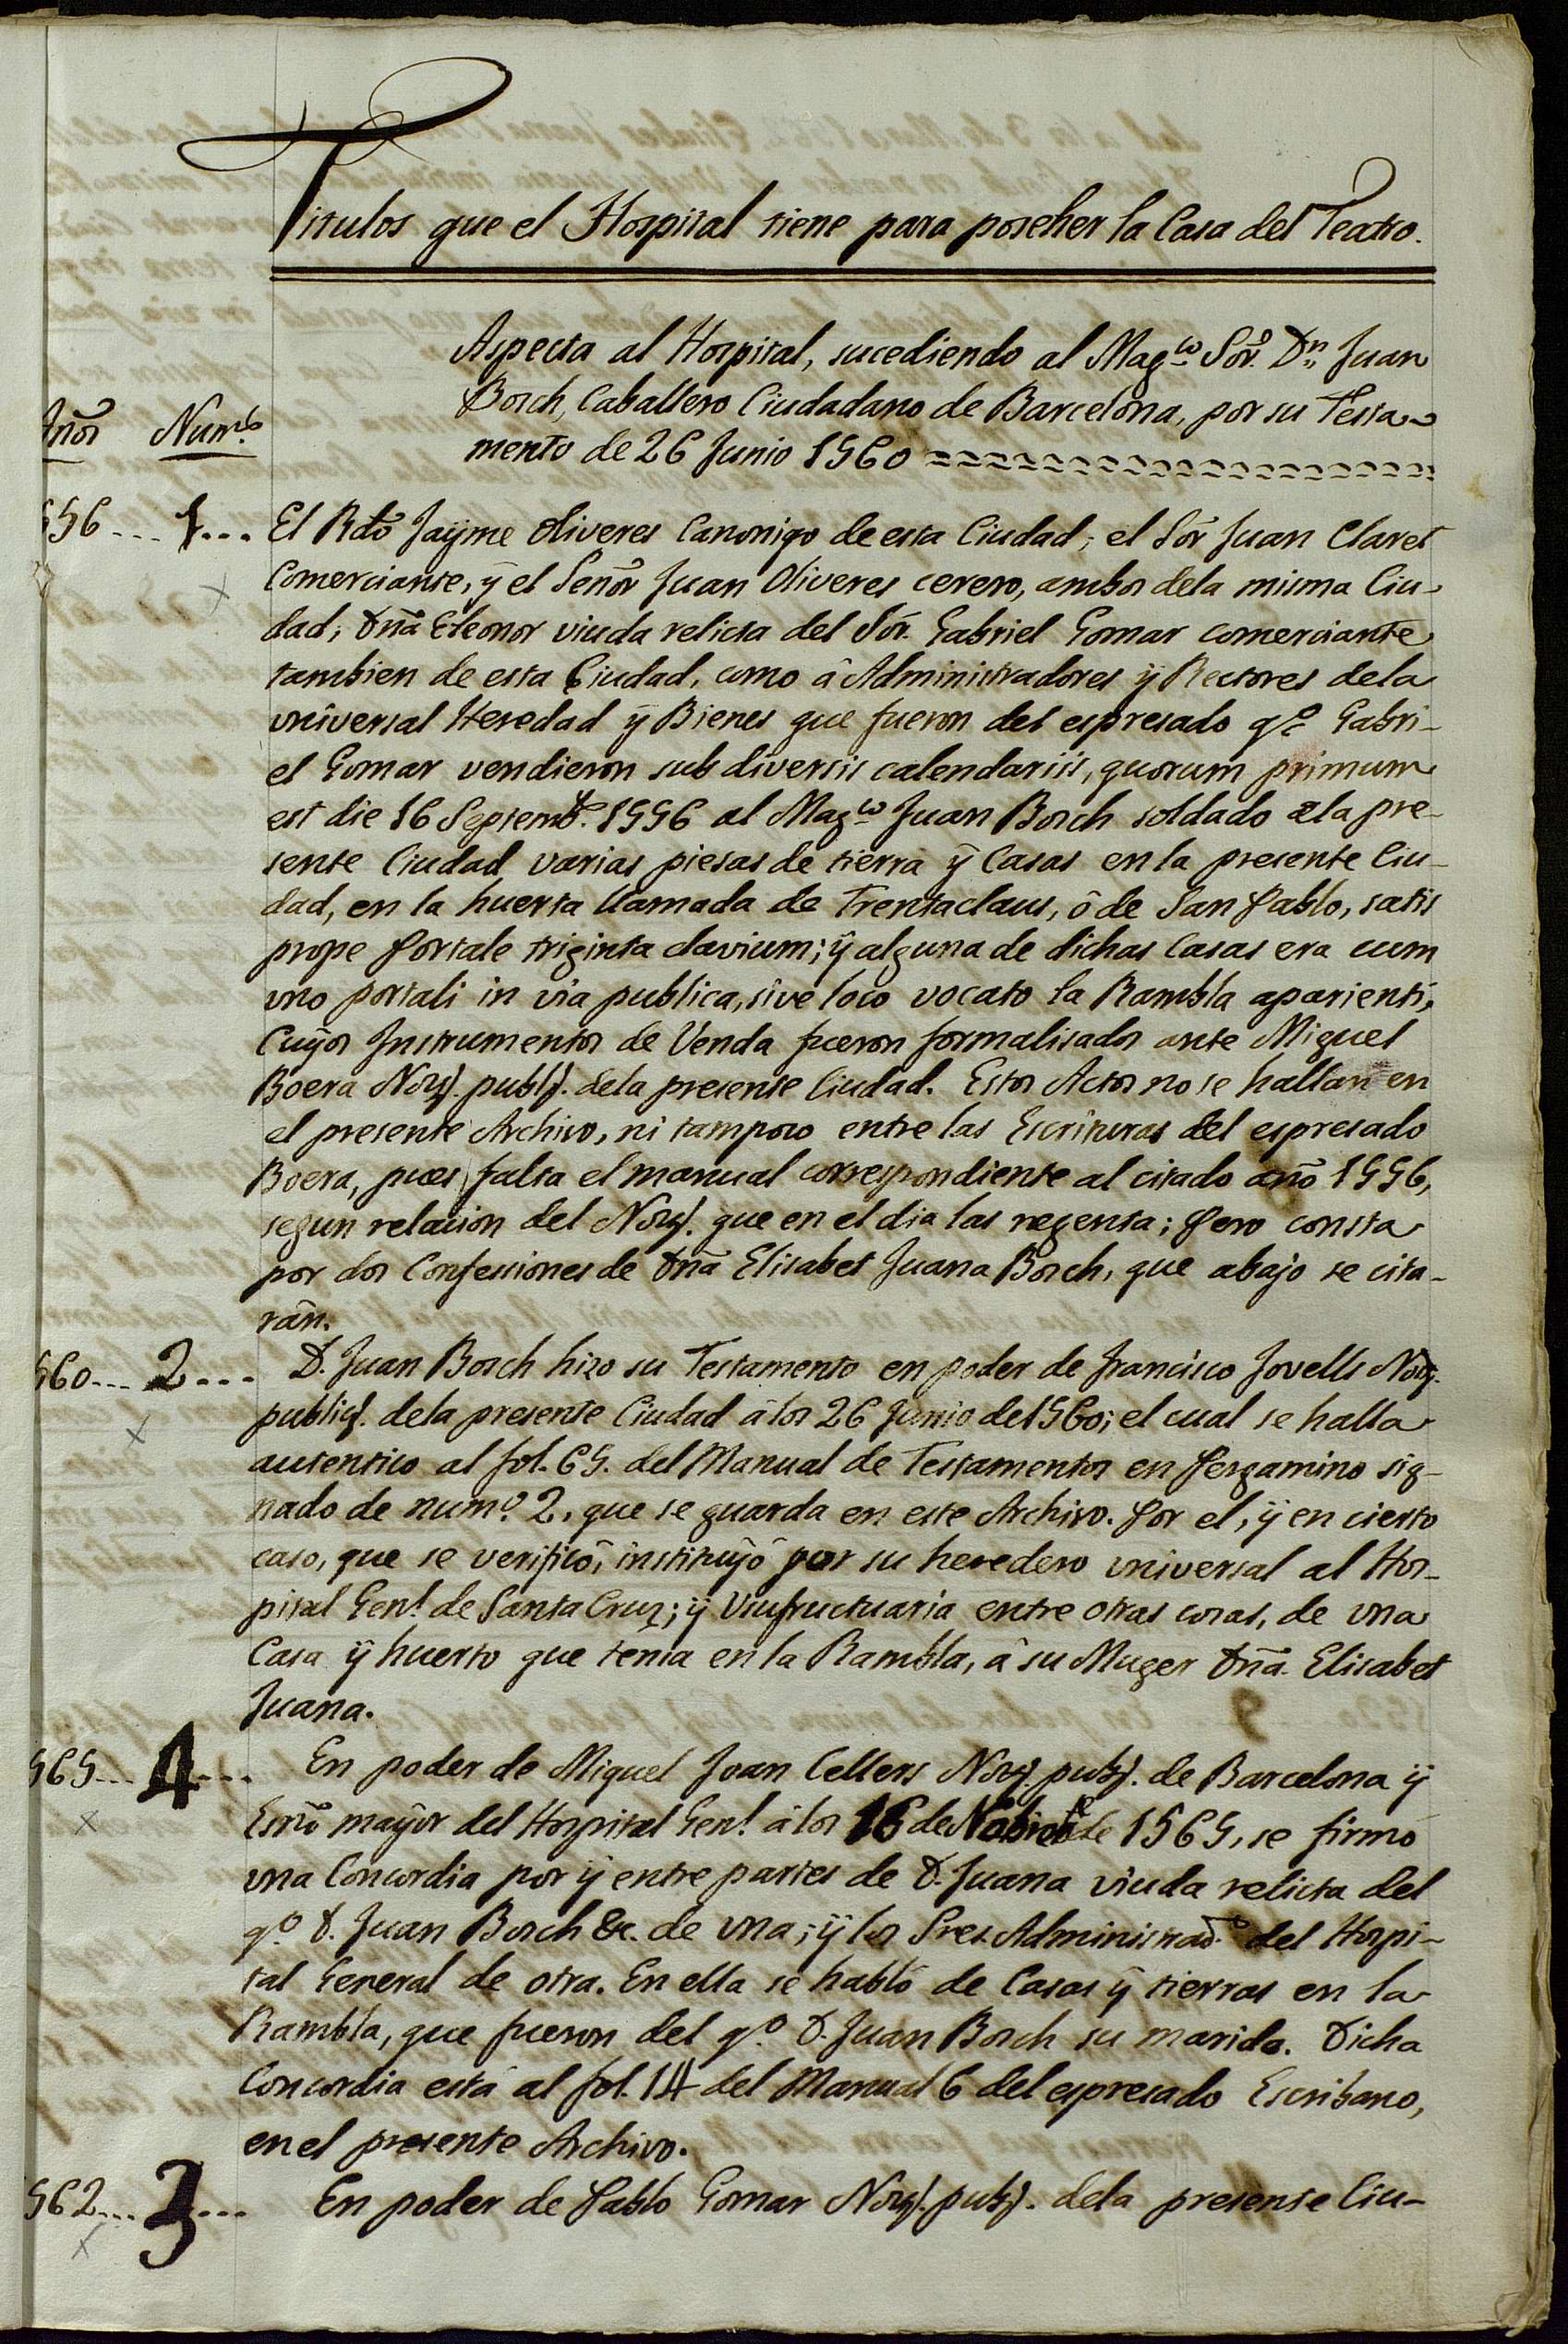 Titulos que el Hospital tiene para poseher la Casa del Teatro.
Aspecta al Hospital, sucediendo al Mag.co Sor. Dn. Juan
Bosch, Caballero Ciudadano de Barcelona, por su Testa-
mento de 26 Junio 1560
Años Num.s
556 1 El Rdo Jayme Oliveres Canonigo de esta Ciudad; el Sor Juan Claret
Comerciante, ÿ el Señor Juan Oliveres cerero, ambos dela misma Ciu-
dad; Dña Eleonor viuda relicta del Sor. Gabriel Gomar comerciante
tambien de esta Ciudad, como â Administradores ÿ Rectores dela
universal Heredad ÿ Bienes que fueron del espresado qo. Gabri-
el Gomar vendieron sub diversis calendariis, quorum primum
est die 16 Septemb.e 1556 al Mag.co Juan Bosch soldado ala pre-
sente Ciudad varias piesas de tierra ÿ Casas en la presente Ciu-
dad, en la huerta llamada de Trentaclaus, ô de San Pablo, satis
prope Portale triginta clavium; ÿ alguna de dichas Casas era cum
uno portali in via publica, sive loco vocato la Rambla aparienti;
Cuÿos Instrumentos de Venda fueron formalisados ante Miguel
Boera Noty. publ. dela presente Ciudad. Estos Actos no se hallan en
el presente Archivo, ni tampoco entre las Escrituras del espresado
Boera, pues falta el manual correspondiente al citado año 1556,
segun relacion del Noty. que en el dia las regenta; Pero consta
por dos Confessiones de Dña Elisabet Juana Bosch, que abajo se cita-
rân.
560 2 D. Juan Bosch hizo su Testamento en poder de Francisco Jovells Noty.
public. dela presente Ciudad â los 26 Junio de 1560; el cual se halla
autentico al fol. 65. del Manual de Testamentos en Pergamino sig-
nado de num.o 2, que se guarda en este Archivo. Por el, ÿ en cierto
caso, que se verificô, instituÿó por su heredero universal al Hos-
pital Gen.l de Santa Cruz; ÿ Usufructuaria entre otras cosas, de una
Casa ÿ huerto que tenia en la Rambla, â su Muger Dña. Elisabet
Juana.
565 4 En poder de Miquel Joan Cellers Noty. pub. de Barcelona ÿ
Esnõ mayor del Hospital Gen.l â los 16 de Nobiembre de 1565, se firmó
una Concordia por ÿ entre partes de D. Juana viuda relicta del
qo. D. Juan Bosch &c. de una; ÿ los Sres. Administrad.s del Hospi-
tal General de otra. En ella se habló de Casas ÿ tierras en la
Rambla, que fueron del qo. D. Juan Bosch su marido. Dicha
Concordia está al fol. 14 del Manual 6 del espresado Escribano,
en el presente Archivo.
562 3 En poder de Pablo Gomar Noty. pub. dela presente Ciu-